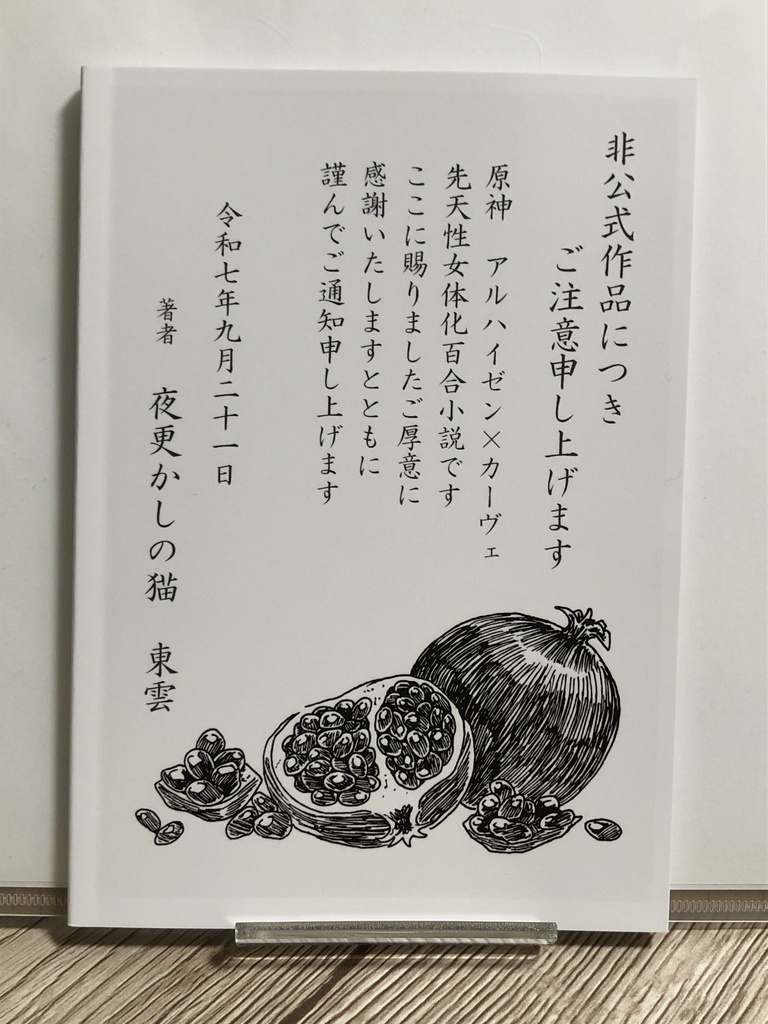 非公式作品につき
ご注意申し上げます
原神　アルハイゼン×カーヴェ
先天性女体化百合小説です
ここに賜りましたご厚意に
感謝いたしますとともに
謹んでご通知申し上げます
令和七年九月二十一日
著者　夜更かしの猫　東雲